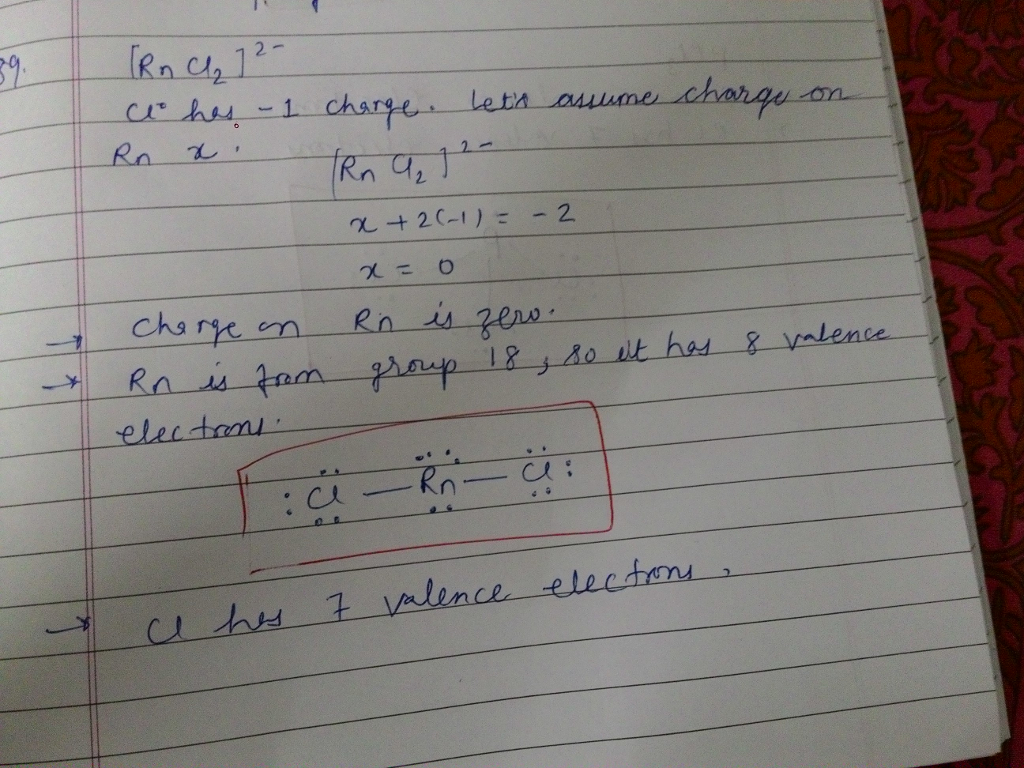 39. [Rn Cl2]2-
Cl has -1 charge. Let's assume charge on
Rn x.
[Rn Cl2]2-
x + 2(-1) = -2
x = 0
→ Charge on Rn is zero.
→ Rn is from group 18, so it has 8 valence
electrons.
:Cl — Rn — Cl:
→ Cl has 7 valence electrons.